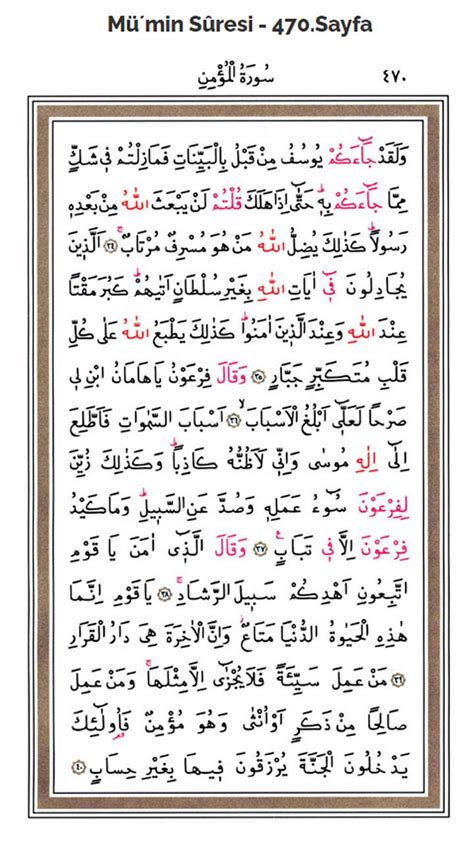 Mü´min Sûresi - 470.Sayfa
سُورَةُ الْمُؤْمِنِ ٤٧٠
وَلَقَدْ جَٓاءَكُمْ يُوسُفُ مِنْ قَبْلُ بِالْبَيِّنَاتِ فَمَازِلْتُمْ فٖى شَكٍّ
مِمَّا جَٓاءَكُمْ بِهٖۜ حَتّٰٓى اِذَا هَلَكَ قُلْتُمْ لَنْ يَبْعَثَ اللّٰهُ مِنْ بَعْدِهٖ
رَسُولًاۜ كَذٰلِكَ يُضِلُّ اللّٰهُ مَنْ هُوَ مُسْرِفٌ مُرْتَابٌۚ ﴿٣٤﴾ اَلَّذٖينَ
يُجَادِلُونَ فٖٓى اٰيَاتِ اللّٰهِ بِغَيْرِ سُلْطَانٍ اَتٰيهُمْۜ كَبُرَ مَقْتًا
عِنْدَ اللّٰهِ وَعِنْدَ الَّذٖينَ اٰمَنُواۜ كَذٰلِكَ يَطْبَعُ اللّٰهُ عَلٰى كُلِّ
قَلْبِ مُتَكَبِّرٍ جَبَّارٍ ﴿٣٥﴾ وَقَالَ فِرْعَوْنُ يَاهَامَانُ ابْنِ لٖى
صَرْحًا لَعَلّٖٓى اَبْلُغُ الْاَسْبَابَۙ ﴿٣٦﴾ اَسْبَابَ السَّمٰوَاتِ فَاَطَّلِعَ
اِلٰٓى اِلٰهِ مُوسٰى وَاِنّٖى لَاَظُنُّهُ كَاذِبًاۜ وَكَذٰلِكَ زُيِّنَ
لِفِرْعَوْنَ سُٓوءُ عَمَلِهٖ وَصُدَّ عَنِ السَّبٖيلِۜ وَمَاكَيْدُ
فِرْعَوْنَ اِلَّا فٖى تَبَابٍۚ ﴿٣٧﴾ وَقَالَ الَّذٖٓى اٰمَنَ يَا قَوْمِ
اتَّبِعُونِ اَهْدِكُمْ سَبٖيلَ الرَّشَادِۚ ﴿٣٨﴾ يَا قَوْمِ اِنَّمَا
هٰذِهِ الْحَيٰوةُ الدُّنْيَا مَتَاعٌۘ وَاِنَّ الْاٰخِرَةَ هِىَ دَارُ الْقَرَارِ
﴿٣٩﴾ مَنْ عَمِلَ سَيِّئَةً فَلَا يُجْزٰٓى اِلَّا مِثْلَهَاۚ وَمَنْ عَمِلَ
صَالِحًا مِنْ ذَكَرٍ اَوْ اُنْثٰى وَهُوَ مُؤْمِنٌ فَاُو۬لٰٓئِكَ
يَدْخُلُونَ الْجَنَّةَ يُرْزَقُونَ فٖيهَا بِغَيْرِ حِسَابٍ ﴿٤٠﴾